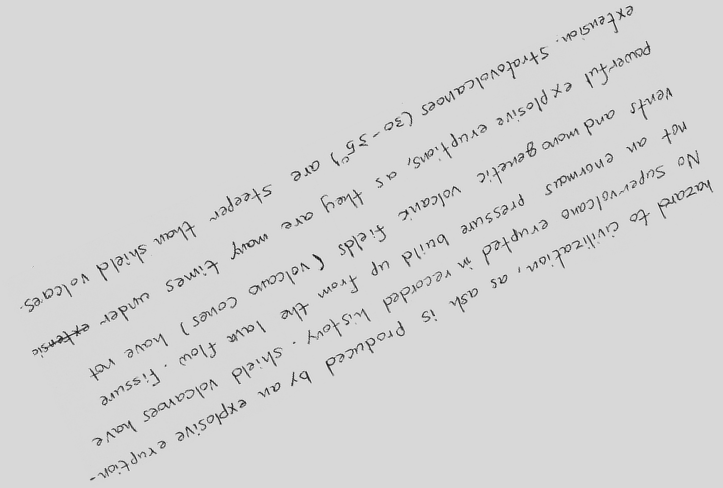 hazard to civilization, as ash is produced by an explosive eruption.
No supervolcano erupted in recorded history. shield volcanoes have
not an enormous pressure build up from the lava flow. Fissure
vents and monogenetic volcanic fields (volcano cones) have not
powerful explosive eruptions, as they are many times under
extension. Stratovolcanoes (30-35°) are steeper than shield volcaoes.